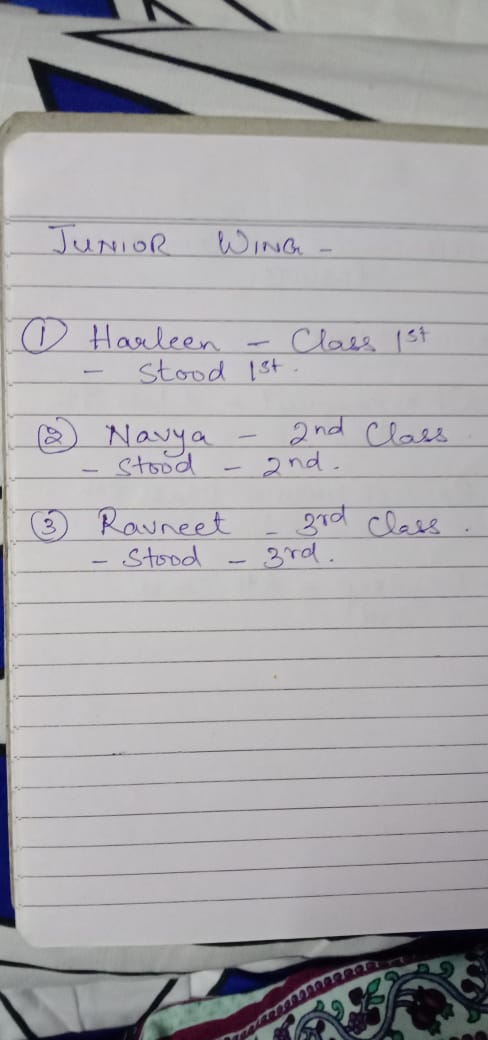 JUNIOR WING -
① Harleen - Class 1st
- Stood 1st.
② Navya - 2nd Class.
- Stood - 2nd.
③ Ravneet - 3rd Class.
- Stood - 3rd.